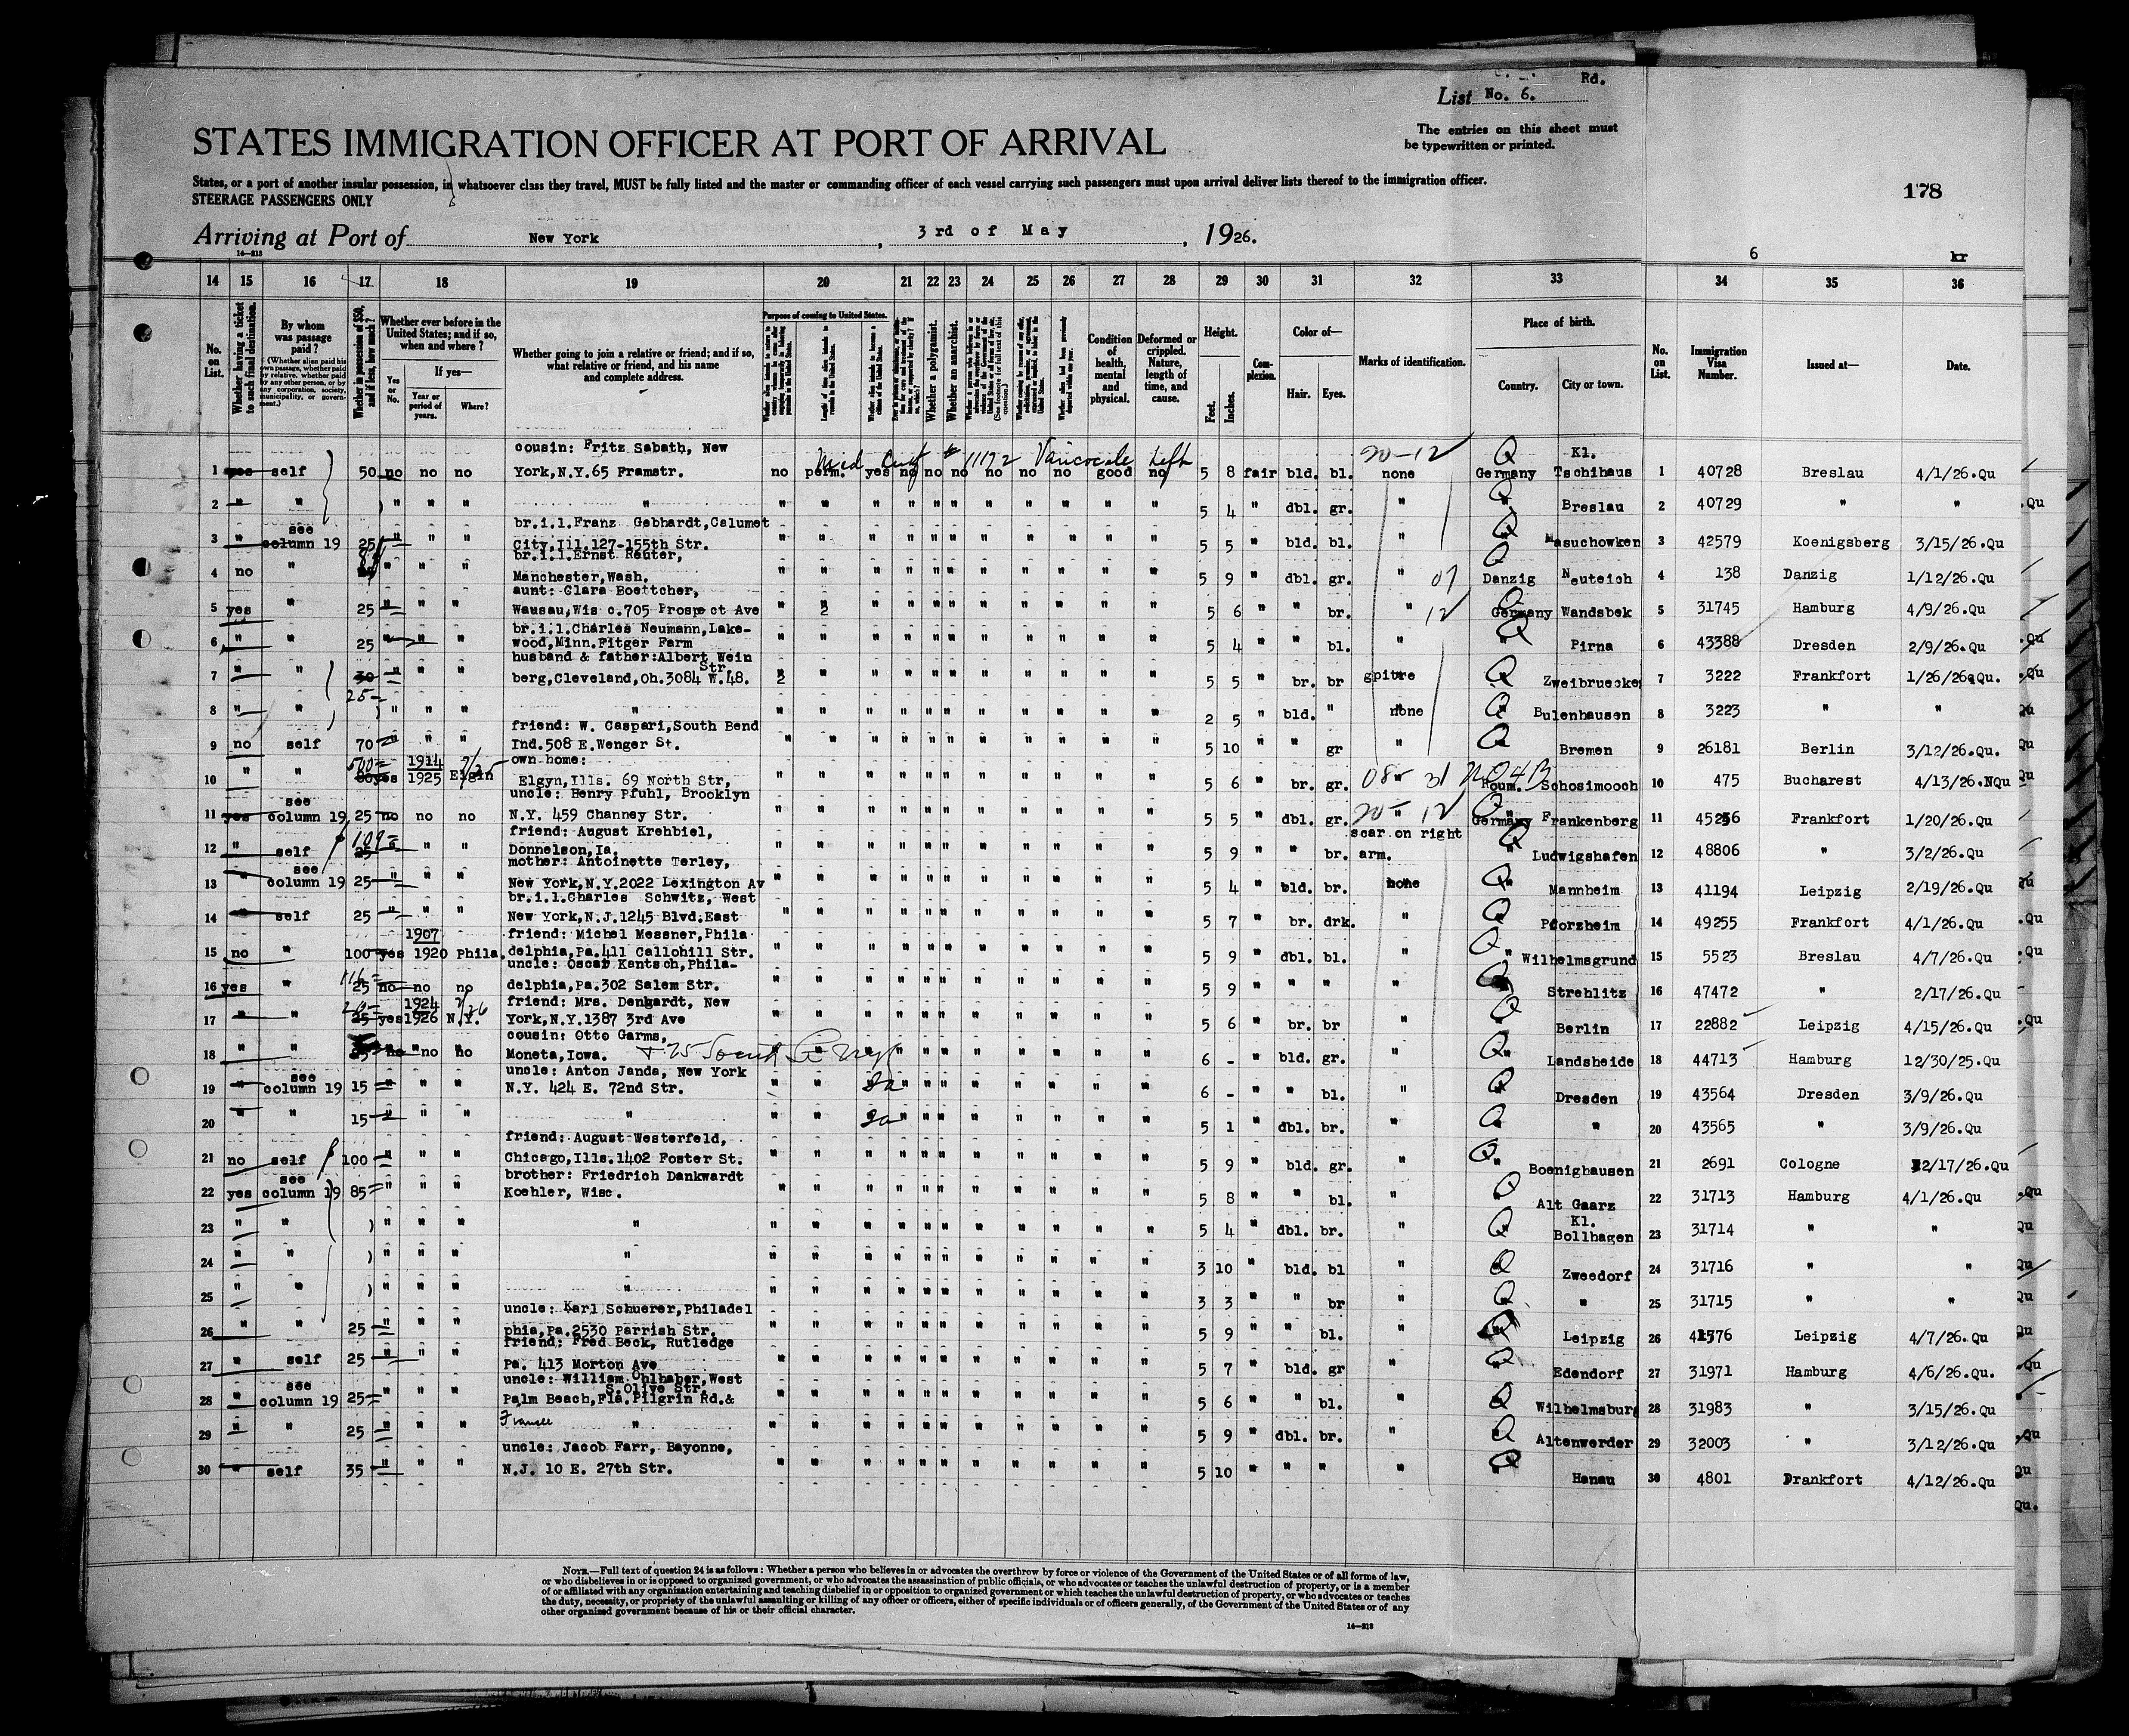 Rd.
List No. 6.
STATES IMMIGRATION OFFICER AT PORT OF ARRIVAL
The entries on this sheet must
be typewritten or printed.
States, or a port of another insular possession, in whatsoever class they travel, MUST be fully listed and the master or commanding officer of each vessel carrying such passengers must upon arrival deliver lists thereof to the immigration officer.
STEERAGE PASSENGERS ONLY
178
Arriving at Port of New York, 3rd of May, 1926.
14—213
6 kr
14 15 16 17 18 19 20 21 22 23 24 25 26 27 28 29 30 31 32 33 34 35 36
No. on List.
Whether having a ticket to such final destination.
By whom was passage paid?
(Whether alien paid his own passage, whether paid by relative, whether paid by any other person, or by any corporation, society, municipality, or government.)
Whether in possession of $50, and if less, how much?
Whether ever before in the United States; and if so, when and where?
Yes or No.
If yes—
Year or period of years.
Where?
Whether going to join a relative or friend; and if so, what relative or friend, and his name and complete address.
Purpose of coming to United States.
Whether a polygamist.
Whether an anarchist.
Condition of health, mental and physical.
Deformed or crippled. Nature, length of time, and cause.
Height.
Feet.
Inches.
Complexion.
Color of—
Hair.
Eyes.
Marks of identification.
Place of birth.
Country.
City or town.
No. on List.
Immigration Visa Number.
Issued at—
Date.
cousin: Fritz Sabath, New
Med Cert # 11172 Varicocele Left
20-12
Kl.
1 yes self 50 no no no York,N.Y.65 Framstr. no perm. yes no no no no no no good no 5 8 fair bld. bl. none Germany Tschihaus 1 40728 Breslau 4/1/26.Qu
2 " " " " " " 5 4 " dbl. gr. " " Breslau 2 40729 " "
see br.i.l.Franz Gebhardt,Calumet
3 " column 19 25 " " " City,Ill.127-155th Str. 5 5 " bld. bl. " " Masuchowken 3 42579 Koenigsberg 3/15/26.Qu
br.i.l.Ernst Reuter,
4 no " " " " Manchester,Wash. 5 9 " dbl. gr. " 07 Danzig Neuteich 4 138 Danzig 1/12/26.Qu
aunt: Clara Boettcher,
5 yes " 25 " " " Wausau,Wis c.705 Prospect Ave " 2 5 6 " " br. " 12 Germany Wandsbek 5 31745 Hamburg 4/9/26.Qu
br.i.l.Charles Neumann,Lake-
6 " " 25 " " " wood,Minn.Fitger Farm 5 4 " " bl. " " Pirna 6 43388 Dresden 2/9/26.Qu
husband & father:Albert Wein
Str.
7 " " 30 " " " berg,Cleveland,Oh.3084 W.48. 2 5 5 " br. br " Zweibruecke 7 3222 Frankfort 1/26/26 Qu.
25-
8 " " " " " " 2 5 " bld. " none " Bulenhausen 8 3223 " "
friend: W. Caspari,South Bend
9 no self 70 " " " Ind.508 E.Wenger St. 5 10 " " gr " " Bremen 9 26181 Berlin 3/12/26.Qu.
500= 1914 own home:
10 " " yes 1925 Elgin Elgyn,Ills. 69 North Str, 5 6 " br. gr. 08 - 31 Roum. Schosimooch 10 475 Bucharest 4/13/26.NQu
see uncle: Henry Pfuhl, Brooklyn
11 yes column 19 25 no no no N.Y. 459 Channey Str. 5 5 " dbl. gr. 20 - 12 Germany Frankenberg 11 45256 Frankfort 1/20/26.Qu
109= friend: August Krehbiel, scar on right
12 " self 25 " " " Donnelson,Ia. 5 9 " " br. arm. " Ludwigshafen 12 48806 " 3/2/26.Qu
see mother: Antoinette Terley,
13 " column 19 25 " " " New York,N.Y.2022 Lexington Av 5 4 " bld. br. none " Mannheim 13 41194 Leipzig 2/19/26.Qu
br.i.l.Charles Schwitz, West
14 " self 25 " " " New York,N.J.1245 Blvd.East 5 7 " br. drk. " " Pforzheim 14 49255 Frankfort 4/1/26.Qu
1907 friend: Michel Messner,Phila
15 no " 100 yes 1920 Phila. delphia,Pa.411 Callohill Str. 5 9 " dbl. bl. " " Wilhelmsgrund 15 5523 Breslau 4/7/26.Qu
uncle: Oscar Kantsch,Phila-
16 yes " 25 no no no delphia,Pa.302 Salem Str. 5 9 " " " " " Strehlitz 16 47472 " 2/17/26.Qu
1924 friend: Mrs. Denhardt, New
17 " " 25 yes 1926 N.Y. York,N.Y.1387 3rd Ave 5 6 " br. br " " Berlin 17 22882 Leipzig 4/15/26.Qu
cousin: Otto Garms,
18 " " no no no Moneta,Iowa. 6 - " bld. gr. " " Landsheide 18 44713 Hamburg 12/30/25.Qu
see uncle: Anton Janda, New York
19 " column 19 15 " " " N.Y. 424 E. 72nd Str. 6 - " " bl. " " Dresden 19 43564 Dresden 3/9/26.Qu
20 " " 15 " " " " 5 1 " dbl. br. " " " 20 43565 " 3/9/26.Qu
friend: August Westerfeld,
21 no self 100 " " " Chicago,Ills.1402 Foster St. 5 9 " bld. gr. " " Boenighausen 21 2691 Cologne 12/17/26.Qu
see brother: Friedrich Dankwardt
22 yes column 19 85 " " " Koehler, Wisc. 5 8 " " bl. " Alt Gaarz 22 31713 Hamburg 4/1/26.Qu
Kl.
23 " " " " " " 5 4 " dbl. br. " " Bollhagen 23 31714 " "
24 " " " " " " 3 10 " bld. bl " " Zweedorf 24 31716 " "
25 " " " " " " 3 3 " " br " " " 25 31715 " "
uncle: Karl Schuerer,Philadel
26 " " 25 " " " phia,Pa.2530 Parrish Str. 5 9 " " bl. " " Leipzig 26 41576 Leipzig 4/7/26.Qu
friend: Fred Beck, Rutledge
27 " self 25 " " " Pa. 413 Morton Ave 5 7 " bld. gr " " Edendorf 27 31971 Hamburg 4/6/26.Qu.
see uncle: William Ohlhaber,West
S.Olive Str.
28 " column 19 25 " " " Palm Beach,Fla.Pilgrin Rd.& 5 6 " " bl. " " Wilhelmsburg 28 31983 " 3/15/26.Qu
29 " " 25 " " " " 5 9 " dbl. br. " " Altenwerder 29 32003 " 3/12/26.Qu
uncle: Jacob Farr, Bayonne,
30 " self 35 " " " N.J. 10 E. 27th Str. 5 10 " " " " " Hanau 30 4801 Drankfort 4/12/26.Qu
NOTE.—Full text of question 24 is as follows: Whether a person who believes in or advocates the overthrow by force or violence of the Government of the United States or of all forms of law,
or who disbelieves in or is opposed to organized government, or who advocates the assassination of public officials, or who advocates or teaches the unlawful destruction of property, or is a member
of or affiliated with any organization entertaining and teaching disbelief in or opposition to organized government or which teaches the unlawful destruction of property, or who advocates or teaches
the duty, necessity, or propriety of the unlawful assaulting or killing of any officer or officers, either of specific individuals or of officers generally, of the Government of the United States or of any
other organized government because of his or their official character.
14—213